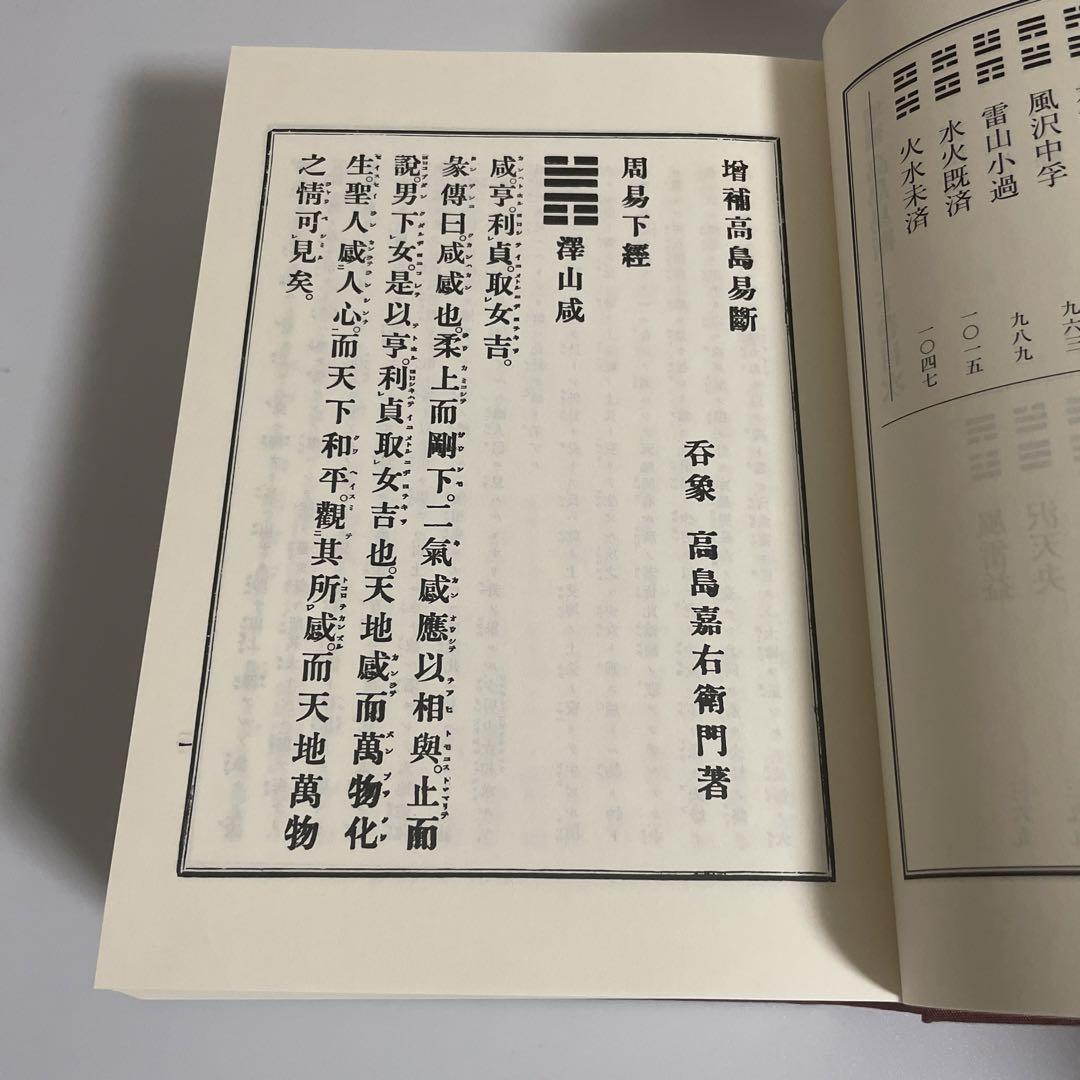 風沢中孚 九六三
雷山小過 九八九
水火既済 一〇一五
火水未済 一〇四七
增補高島易斷
呑象 高島嘉右衞門著
周易下經
澤山咸
咸。亨。利貞。取女吉。
彖傳曰。咸感也。柔上而剛下。二氣感應以相與。止而
說。男下女。是以亨。利貞取女吉也。天地感而萬物化
生。聖人感人心。而天下和平。觀其所感。而天地萬物
之情可見矣。
一